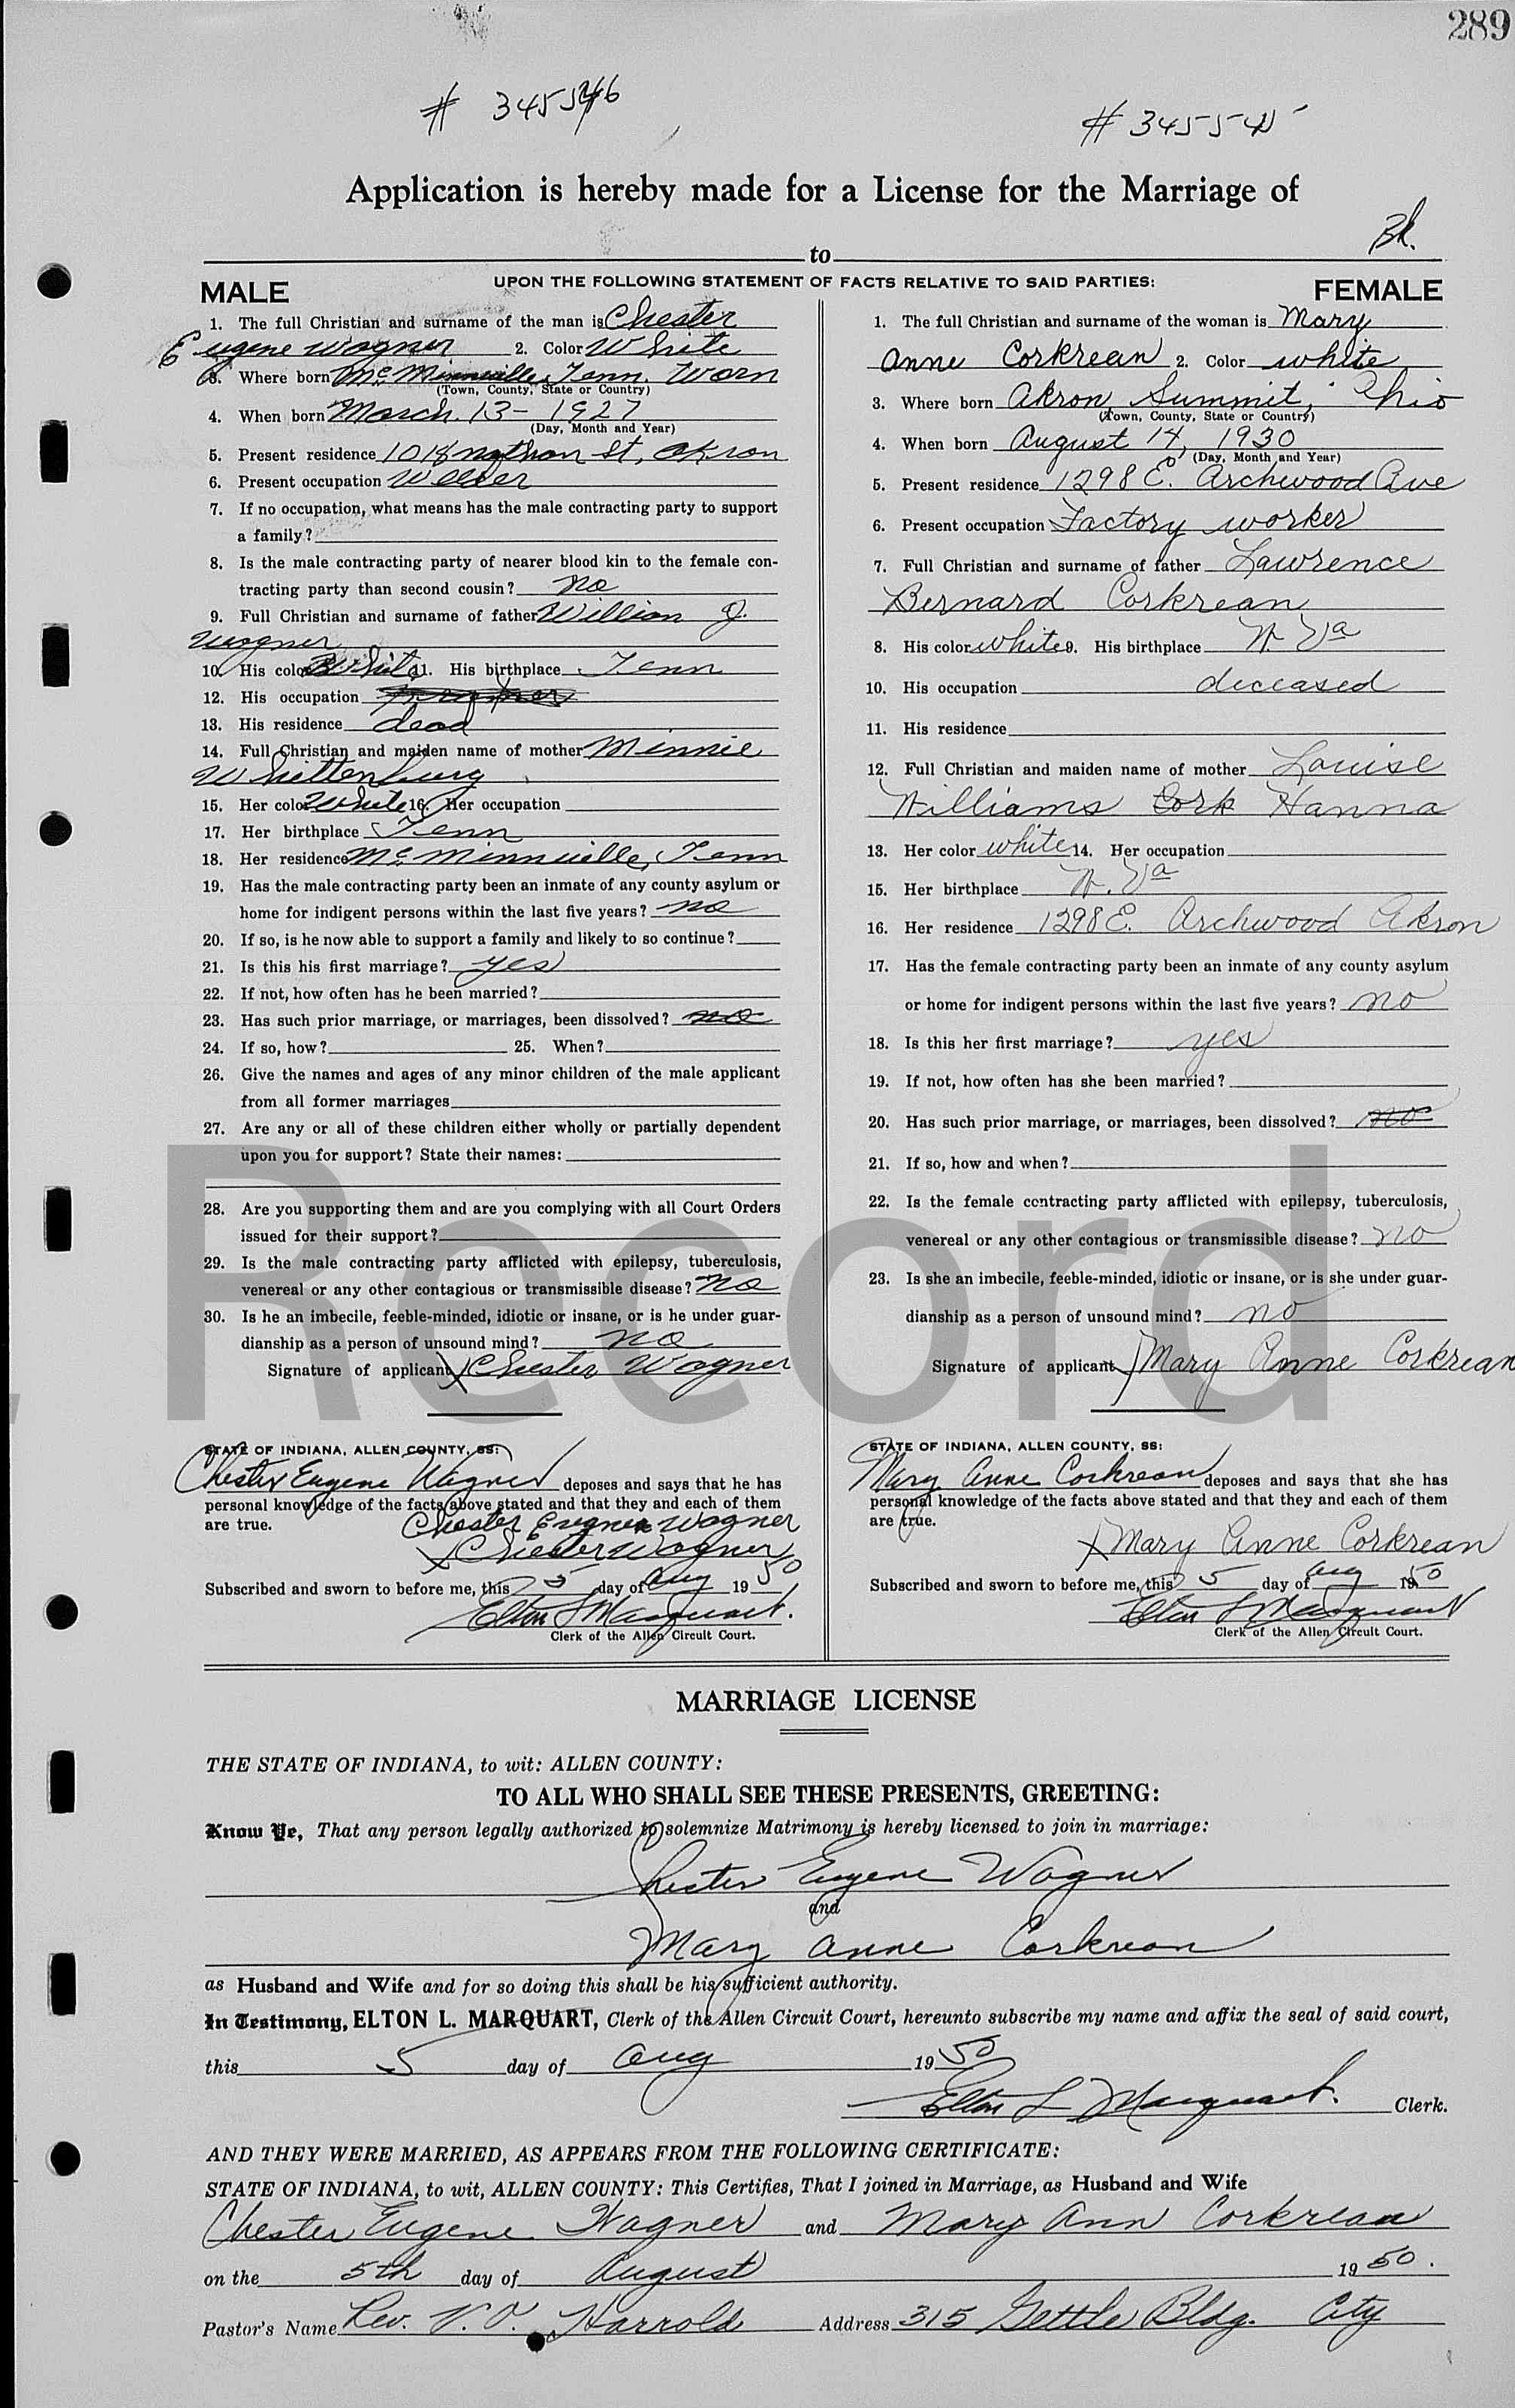 289
# 345546
# 345545
Application is hereby made for a License for the Marriage of
Bk.
to
UPON THE FOLLOWING STATEMENT OF FACTS RELATIVE TO SAID PARTIES:
MALE
1. The full Christian and surname of the man is Chester
Eugene Wagner 2. Color White
3. Where born Mc Minnville, Tenn. Warn
(Town, County, State or Country)
4. When born March. 13 - 1927
(Day, Month and Year)
5. Present residence 1018 Nathan St, Akron
6. Present occupation Welder
7. If no occupation, what means has the male contracting party to support
a family?
8. Is the male contracting party of nearer blood kin to the female con-
tracting party than second cousin? no
9. Full Christian and surname of father William J.
Wagner
10. His color White 11. His birthplace Tenn
12. His occupation
13. His residence dead
14. Full Christian and maiden name of mother Minnie
Whittenburg
15. Her color White 16. Her occupation
17. Her birthplace Tenn
18. Her residence Mc Minnville, Tenn
19. Has the male contracting party been an inmate of any county asylum or
home for indigent persons within the last five years? no
20. If so, is he now able to support a family and likely to so continue?
21. Is this his first marriage? yes
22. If not, how often has he been married?
23. Has such prior marriage, or marriages, been dissolved? no
24. If so, how? 25. When?
26. Give the names and ages of any minor children of the male applicant
from all former marriages
27. Are any or all of these children either wholly or partially dependent
upon you for support? State their names:
28. Are you supporting them and are you complying with all Court Orders
issued for their support?
29. Is the male contracting party afflicted with epilepsy, tuberculosis,
venereal or any other contagious or transmissible disease? no
30. Is he an imbecile, feeble-minded, idiotic or insane, or is he under guar-
dianship as a person of unsound mind? no
Signature of applicant X Chester Wagner
STATE OF INDIANA, ALLEN COUNTY, SS:
Chester Eugene Wagner deposes and says that he has
personal knowledge of the facts above stated and that they and each of them
are true. Chester Eugene Wagner
X Chester Wagner
Subscribed and sworn to before me, this 5 day of Aug 1950
Elton L Marquart.
Clerk of the Allen Circuit Court.
FEMALE
1. The full Christian and surname of the woman is Mary
Anne Corkrean 2. Color white
3. Where born Akron Summit, Ohio
(Town, County, State or Country)
4. When born August 14, 1930
(Day, Month and Year)
5. Present residence 1298 E. Archwood Ave
6. Present occupation Factory worker
7. Full Christian and surname of father Lawrence
Bernard Corkrean
8. His color white 9. His birthplace W Va
10. His occupation deceased
11. His residence
12. Full Christian and maiden name of mother Louise
Williams Cork Hanna
13. Her color white 14. Her occupation
15. Her birthplace W. Va
16. Her residence 1298 E. Archwood Akron
17. Has the female contracting party been an inmate of any county asylum
or home for indigent persons within the last five years? no
18. Is this her first marriage? yes
19. If not, how often has she been married?
20. Has such prior marriage, or marriages, been dissolved? no
21. If so, how and when?
22. Is the female contracting party afflicted with epilepsy, tuberculosis,
venereal or any other contagious or transmissible disease? no
23. Is she an imbecile, feeble-minded, idiotic or insane, or is she under guar-
dianship as a person of unsound mind? no
Signature of applicant X Mary Anne Corkrean
STATE OF INDIANA, ALLEN COUNTY, SS:
Mary Anne Corkrean deposes and says that she has
personal knowledge of the facts above stated and that they and each of them
are true.
X Mary Anne Corkrean
Subscribed and sworn to before me, this 5 day of Aug 1950
Elton L Marquart
Clerk of the Allen Circuit Court.
Record
MARRIAGE LICENSE
THE STATE OF INDIANA, to wit: ALLEN COUNTY:
TO ALL WHO SHALL SEE THESE PRESENTS, GREETING:
Know Ye, That any person legally authorized to solemnize Matrimony is hereby licensed to join in marriage:
Chester Eugene Wagner
and
Mary Anne Corkrean
as Husband and Wife and for so doing this shall be his sufficient authority.
In Testimony, ELTON L. MARQUART, Clerk of the Allen Circuit Court, hereunto subscribe my name and affix the seal of said court,
this 5 day of Aug 1950
Elton L Marquart. Clerk.
AND THEY WERE MARRIED, AS APPEARS FROM THE FOLLOWING CERTIFICATE:
STATE OF INDIANA, to wit, ALLEN COUNTY: This Certifies, That I joined in Marriage, as Husband and Wife
Chester Eugene Wagner and Mary Ann Corkrean
on the 5th day of August 1950.
Pastor's Name Rev. V. V. Harrold Address 315 Gettle Bldg. City